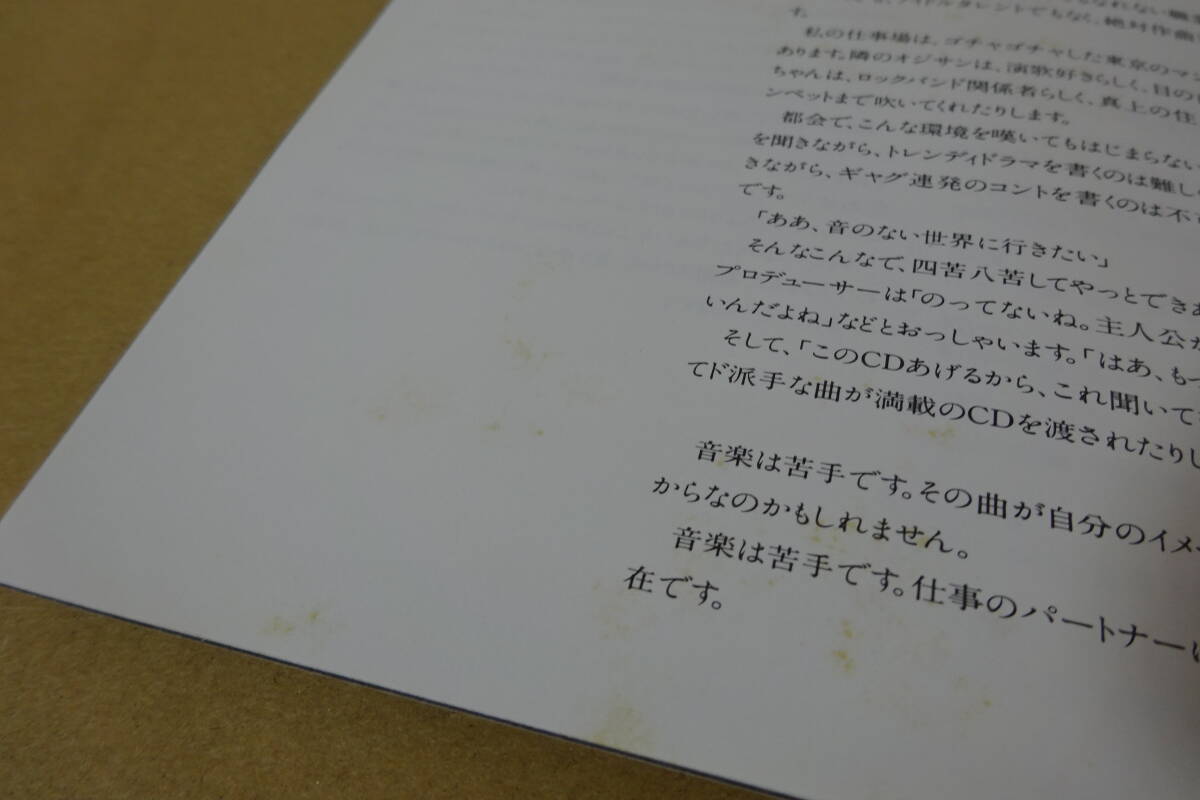 もなれない職
アイドルタレントでもなく、絶対作曲
す。
私の仕事場は、ゴチャゴチャした東京のマン
あります。隣のオジサンは、演歌好きらしく、目の
ちゃんは、ロックバンド関係者らしく、真上の住
ンペットまで吹いてくれたりします。
都会で、こんな環境を嘆いてもはじまらない
を聞きながら、トレンディドラマを書くのは難し
きながら、ギャグ連発のコントを書くのは不
です。
「ああ、音のない世界に行きたい」
そんなこんなで、四苦八苦してやっとできあ
プロデューサーは「のってないね。主人公が
いんだよね」などとおっしゃいます。「はあ、もっ
そして、「このCDあげるから、これ聞いて
てド派手な曲が満載のCDを渡されたりし
音楽は苦手です。その曲が自分のイメー
からなのかもしれません。
音楽は苦手です。仕事のパートナーに
在です。